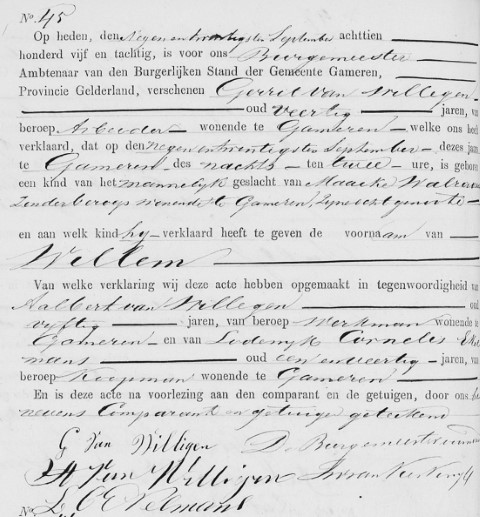 No. 45
Op heden, den Negen en twintigsten September achttien
honderd vijf en tachtig, is voor ons Burgemeester
Ambtenaar van den Burgerlijken Stand der Gemeente Gameren,
Provincie Gelderland, verschenen Gerrit van Willegen
oud veertig jaren, van
beroep Arbeider wonende te Gameren welke ons heeft
verklaard, dat op den negen en twintigsten September dezes jaars
te Gameren des nachts ten twee ure, is geboren
een kind van het mannelijk geslacht van Maaike
Zonder beroep wonende te Gameren, zijne echtgenoote
en aan welk kind hij verklaard heeft te geven de voornaam van
Willem
Van welke verklaring wij deze acte hebben opgemaakt in tegenwoordigheid van
Aalbert van Willegen oud
vijftig jaren, van beroep Werkman wonende te
Gameren en van Lodewyk Cornelis Ekel
mans oud een en veertig jaren, van
beroep Koopman wonende te Gameren
En is deze acte na voorlezing aan den comparant en de getuigen, door ons be
nevens Comparant en getuigen geteekend
G Van Willigen De Burgemeester
A Van Willigen
L C Ekelmans
No.